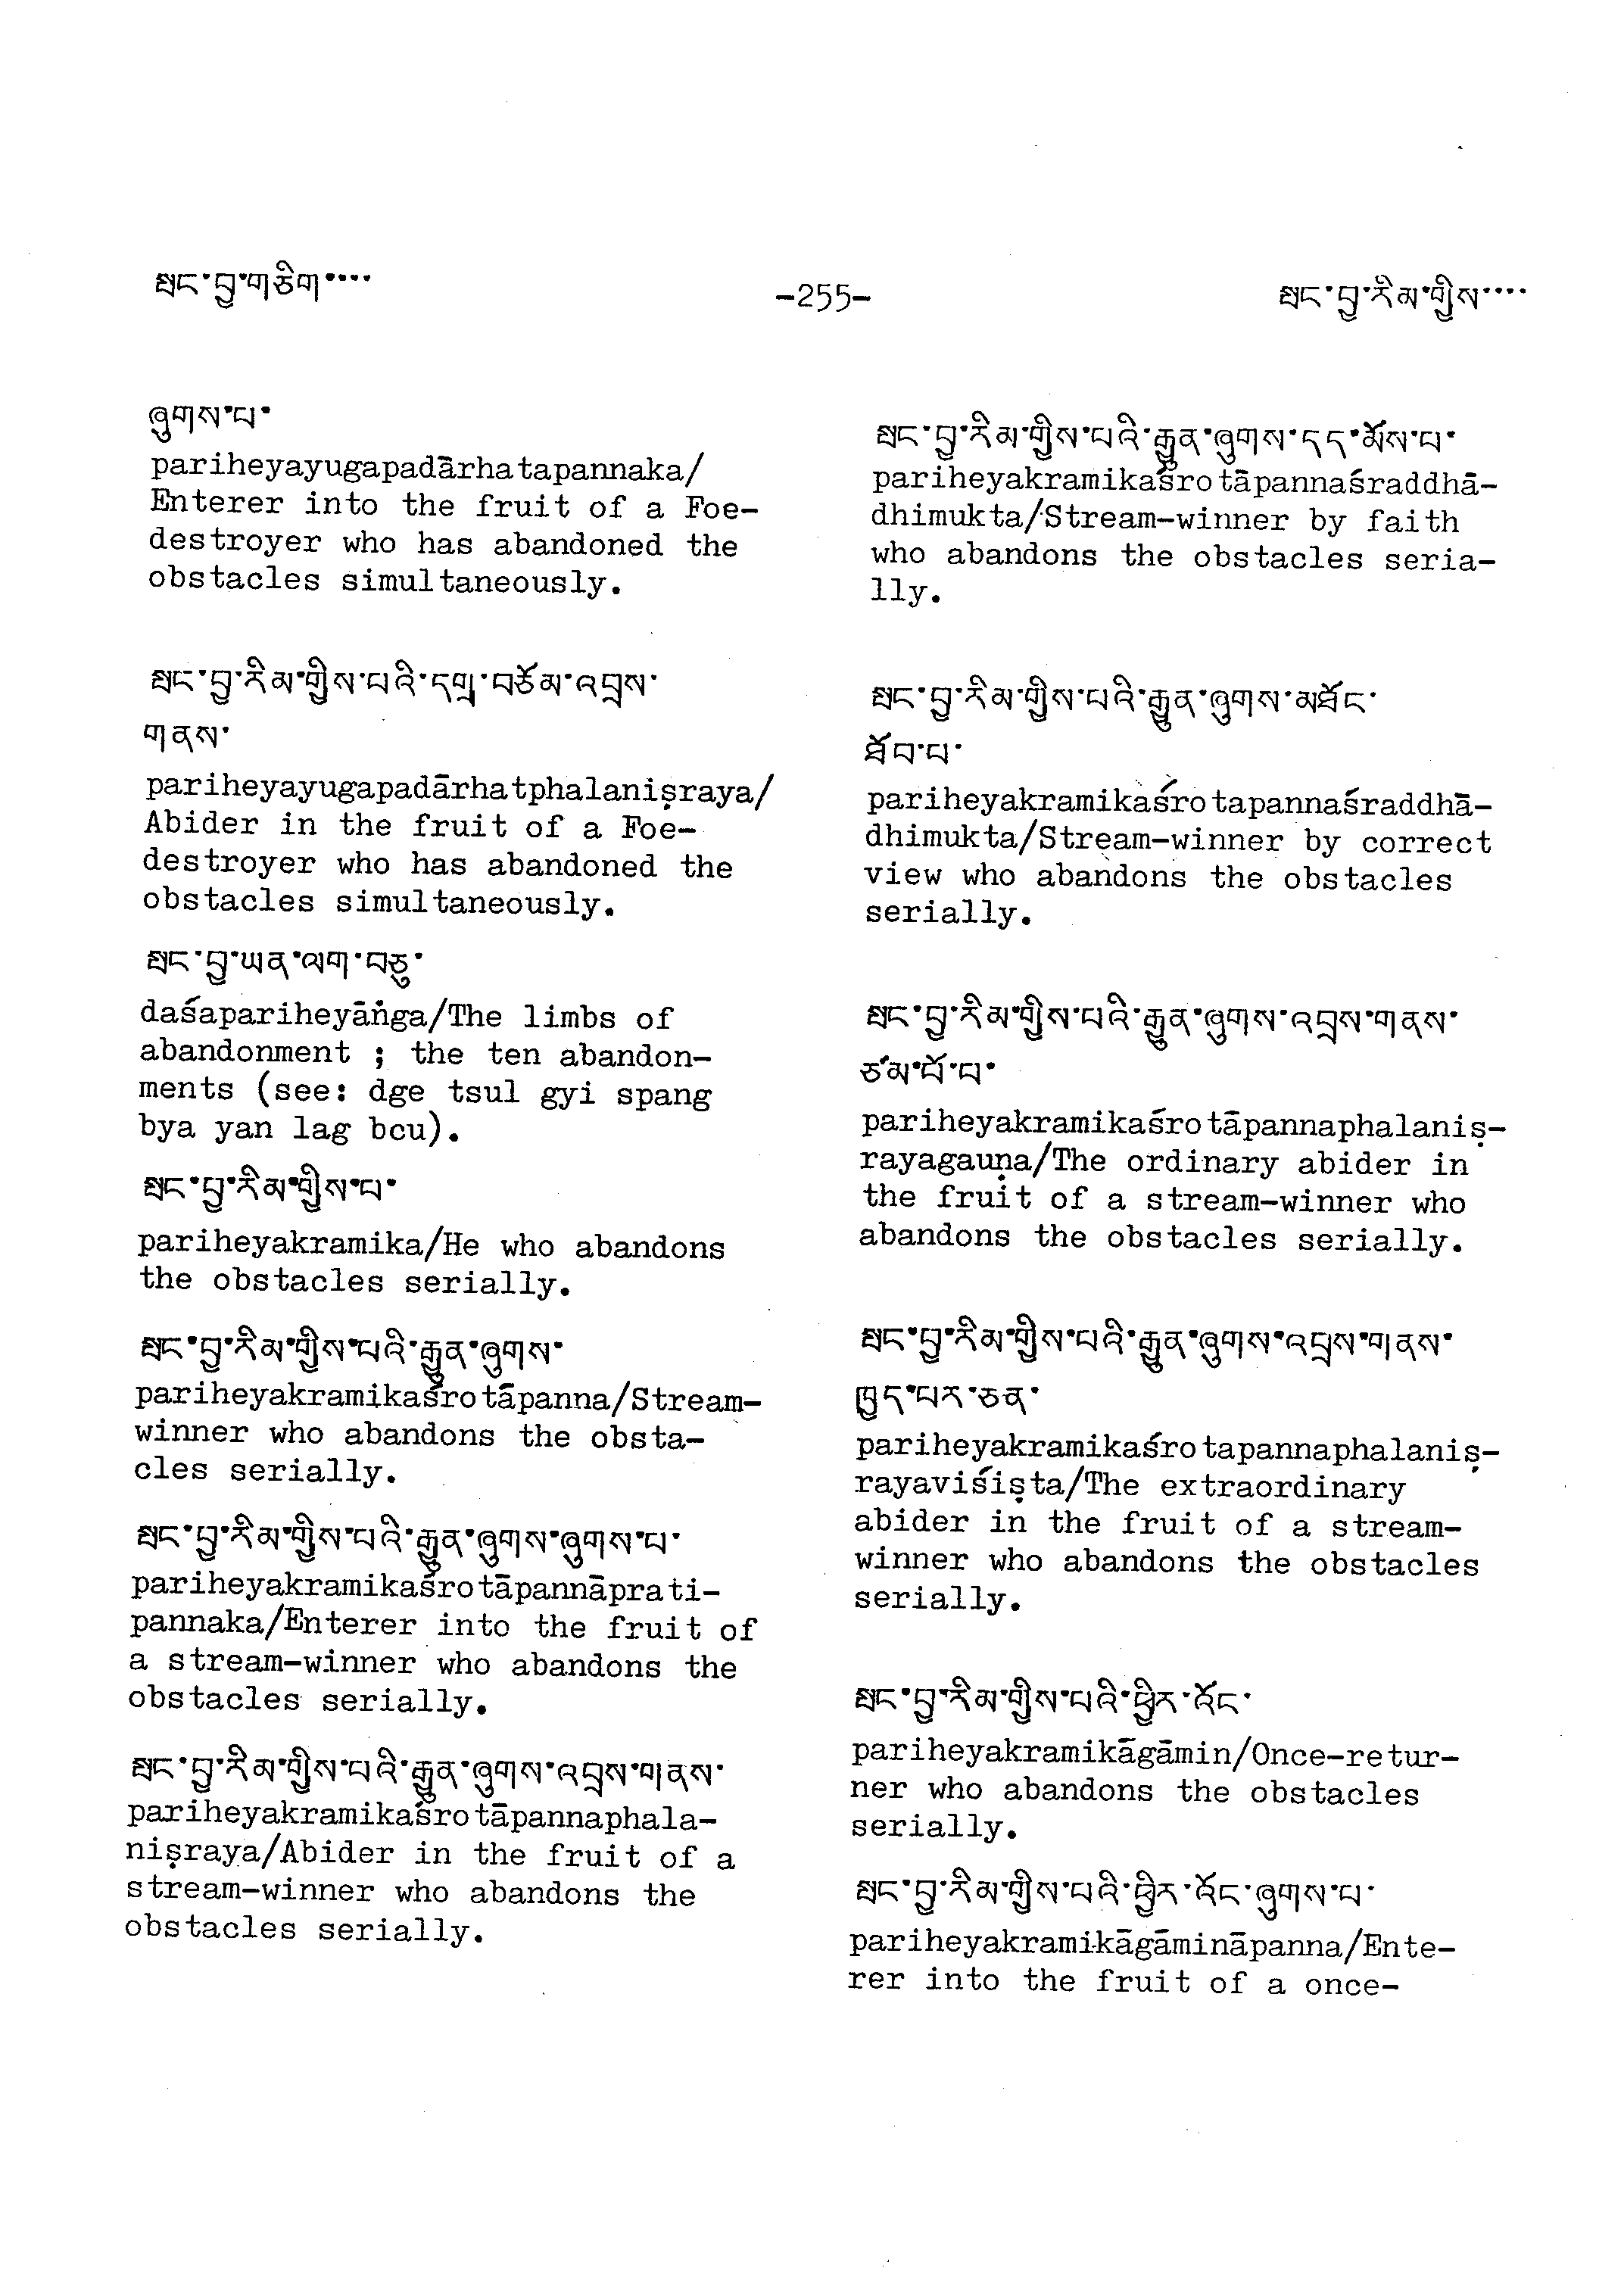 སྤང་བྱ་གཅིག་····
-255-
སྤང་བྱ་རིམ་གྱིས་····
ཞུགས་པ་
pariheyayugapadārhatapannaka/
Enterer into the fruit of a Foe-
destroyer who has abandoned the
obstacles simultaneously.
སྤང་བྱ་རིམ་གྱིས་པའི་དགྲ་བཅོམ་འབྲས་
གནས་
pariheyayugapadārhatphalaniṣraya/
Abider in the fruit of a Foe-
destroyer who has abandoned the
obstacles simultaneously.
སྤང་བྱ་ཡན་ལག་བཅུ་
daśapariheyāṅga/The limbs of
abandonment ; the ten abandon-
ments (see: dge tsul gyi spang
bya yan lag bcu).
སྤང་བྱ་རིམ་གྱིས་པ་
pariheyakramika/He who abandons
the obstacles serially.
སྤང་བྱ་རིམ་གྱིས་པའི་རྒྱུན་ཞུགས་
pariheyakramikaśrotāpanna/Stream-
winner who abandons the obsta-
cles serially.
སྤང་བྱ་རིམ་གྱིས་པའི་རྒྱུན་ཞུགས་ཞུགས་པ་
pariheyakramikaśrotāpannāprati-
pannaka/Enterer into the fruit of
a stream-winner who abandons the
obstacles serially.
སྤང་བྱ་རིམ་གྱིས་པའི་རྒྱུན་ཞུགས་འབྲས་གནས་
pariheyakramikaśrotāpannaphala-
niṣraya/Abider in the fruit of a
stream-winner who abandons the
obstacles serially.
སྤང་བྱ་རིམ་གྱིས་པའི་རྒྱུན་ཞུགས་དད་མོས་པ་
pariheyakramikaśrotāpannaśraddhā-
dhimukta/Stream-winner by faith
who abandons the obstacles seria-
lly.
སྤང་བྱ་རིམ་གྱིས་པའི་རྒྱུན་ཞུགས་མཐོང་
ཐོབ་པ་
pariheyakramikaśrotapannaśraddhā-
dhimukta/Stream-winner by correct
view who abandons the obstacles
serially.
སྤང་བྱ་རིམ་གྱིས་པའི་རྒྱུན་ཞུགས་འབྲས་གནས་
ཙམ་པོ་པ་
pariheyakramikaśrotāpannaphalaniṣ-
rayagauṇa/The ordinary abider in
the fruit of a stream-winner who
abandons the obstacles serially.
སྤང་བྱ་རིམ་གྱིས་པའི་རྒྱུན་ཞུགས་འབྲས་གནས་
ཁྱད་པར་ཅན་
pariheyakramikaśrotapannaphalaniṣ-
rayaviśiṣta/The extraordinary
abider in the fruit of a stream-
winner who abandons the obstacles
serially.
སྤང་བྱ་རིམ་གྱིས་པའི་ཕྱིར་འོང་
pariheyakramikāgāmin/Once-retur-
ner who abandons the obstacles
serially.
སྤང་བྱ་རིམ་གྱིས་པའི་ཕྱིར་འོང་ཞུགས་པ་
pariheyakramikāgāmināpanna/Ente-
rer into the fruit of a once-